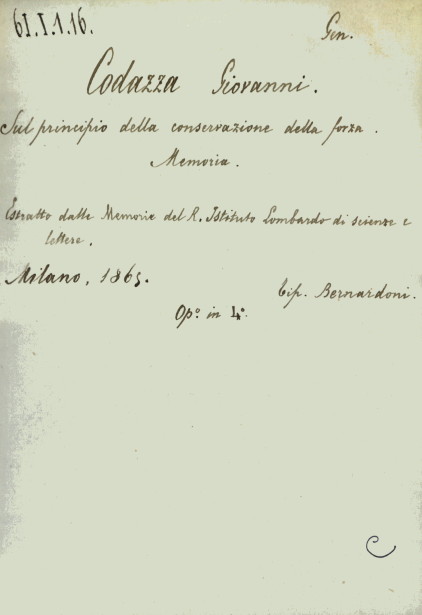 61.I.1.16.
Gen.
Codazza Giovanni.
Sul principio della conservazione della forza.
Memoria.
Estratto dalle Memorie del R. Istituto Lombardo di scienze e
lettere.
Milano, 1865.
Tip. Bernardoni.
Op.º in 4º.
C